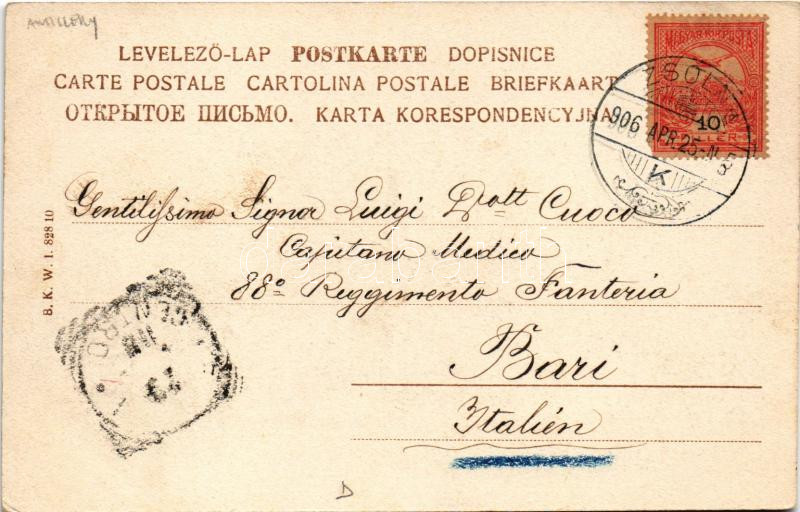 ARTILLERY
LEVELEZŐ-LAP POSTKARTE DOPISNICE
CARTE POSTALE CARTOLINA POSTALE BRIEFKAART
ОТКРЫТОЕ ПИСЬМО. KARTA KORESPONDENCYJNA
MAGYAR KIR. POSTA
10
FILLER
ZSOLNA
906 APR. 25
K
Gentilissimo Signor Luigi Dott Cuoco
Capitano Medico
88º Reggimento Fanteria
Bari
Italién
B. K. W. I. 828 10
CENTRO
D